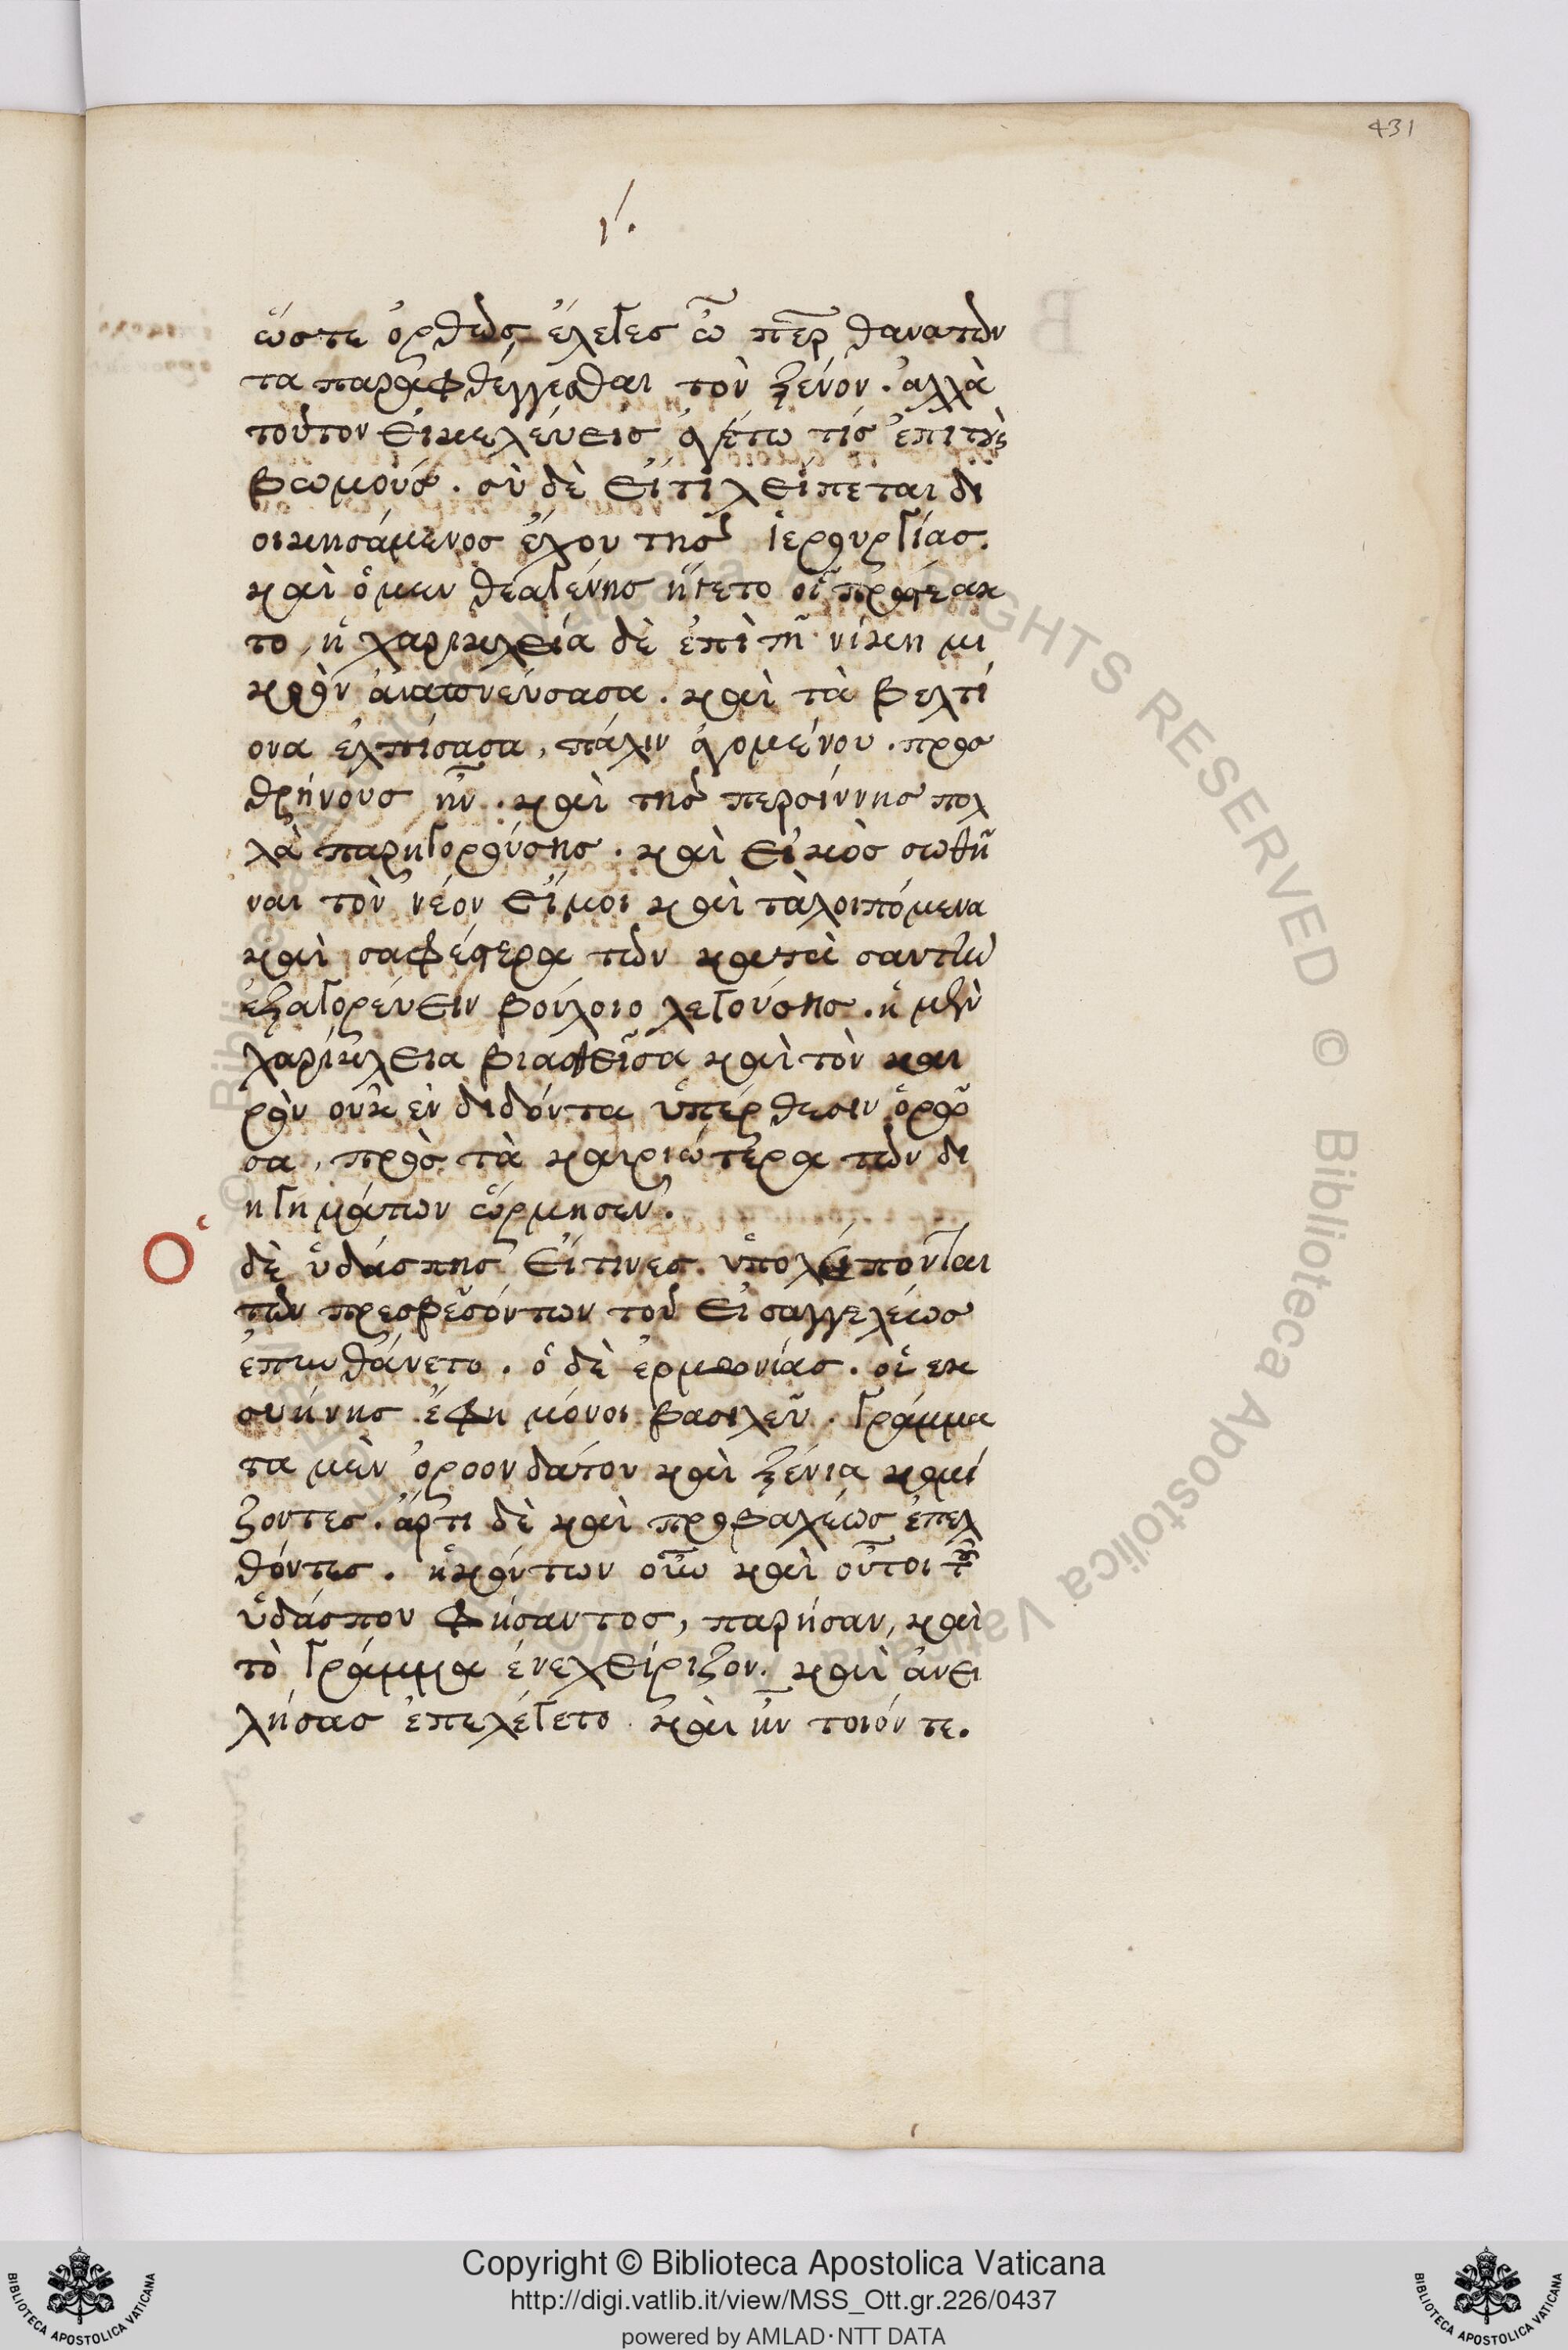 431
ι΄.
ὥστε ὀρθῶς ἔλεγες ὦ περ θανατῶν
τα παραφθέγγεσθαι τὸν ξένον. ἀλλὰ
τοῦτον εἰ κελεύεις ἀγέτω τίς ἐπὶ τοὺς
βωμούς. σὺ δὲ εἴ τι λείπεται δι
οικησάμενος ἔχου τῆς ἱερουργίας.
καὶ ὁ μεν θεαγένης ἤγετο οἷ προσετακ
το, ἡ χαρικλεία δὲ ἐπὶ τῆ νίκη μι
κρὸν ἀναπνεύσασα. καὶ τὰ βελτί
ονα ἐλπίσασα, πάλιν ἀγομένου. προς
θρήνους ἦν. καὶ τῆς περσίννης πολ
λὰ παρηγορούσης. καὶ εἰκὸς σωθῆ
ναι τὸν νέον εἴ μοι καὶ τὰ λοιπόμενα
καὶ σαφέστερα τῶν κατὰ σαυτὴν
ἐξαγορεύειν βούλοιο λεγούσης. ἡ μὲν
χαρίκλεια βιασθεῖσα καὶ τὸν και
ρὸν οὐκ ἐν διδόντα ὑπέρθεσιν ὁρῶ
σα, πρὸς τὰ καιριώτερα τῶν δι
ηγημάτων ὥρμησεν.
Ὁ
δὲ ὑδάσπης εἴ τινες ὑπολείπονται
τῶν πρεσβευόντων τοῦ εἰσαγγελέως
ἐπυνθάνετο. ὁ δὲ ἑρμωνίας. οἱ εκ
συήνης ἔφη μόνοι βασιλεῦ. γράμμα
τα μὲν ὀροονδάτου καὶ ξένια κομί
ζοντες. ἄρτι δὲ καὶ πρὸ βαχέως ἐπελ
θόντες. ἡκόντων οὖν καὶ οὗτοι τοῦ
ὑδάσπου φήσαντος, παρῆσαν, καὶ
τὸ γράμμα ἐνεχείριζον. καὶ ἀνει
λήσας ἐπελέγετο καὶ ἦν τοιόν τε.
© Biblioteca Apostolica Vaticana ALL RIGHTS RESERVED
Copyright © Biblioteca Apostolica Vaticana
http://digi.vatlib.it/view/MSS_Ott.gr.226/0437
powered by AMLAD·NTT DATA
BIBLIOTECA APOSTOLICA VATICANA
BIBLIOTECA APOSTOLICA VATICANA